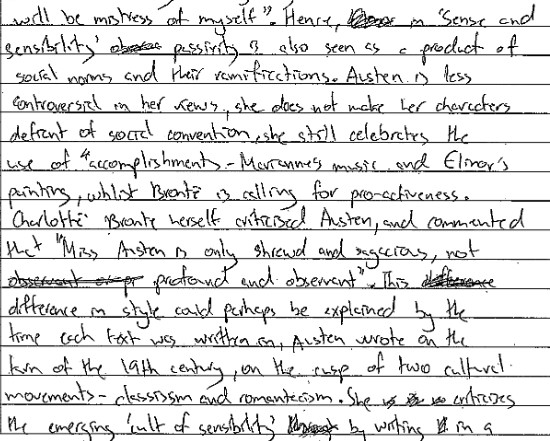 will be mistress of myself". Hence, in 'Sense and
sensibility' passivity is also seen as a product of
social norms and their ramifications. Austen is less
controversial in her views, she does not make her characters
defiant of social convention, she still celebrates the
use of "accomplishments - Mariannes music and Elinor's
painting, whilst Brontë is calling for pro-activeness.
Charlotte Bronte herself criticised Austen, and commented
that "Miss Austen is only shrewd and sagacious, not
profound and observant". This
difference in style could perhaps be explained by the
time each text was written in, Austen wrote on the
turn of the 19th century, on the cusp of two cultural
movements - classism and romanticism. She criticizes
the emerging 'cult of sensibility' by writing in a